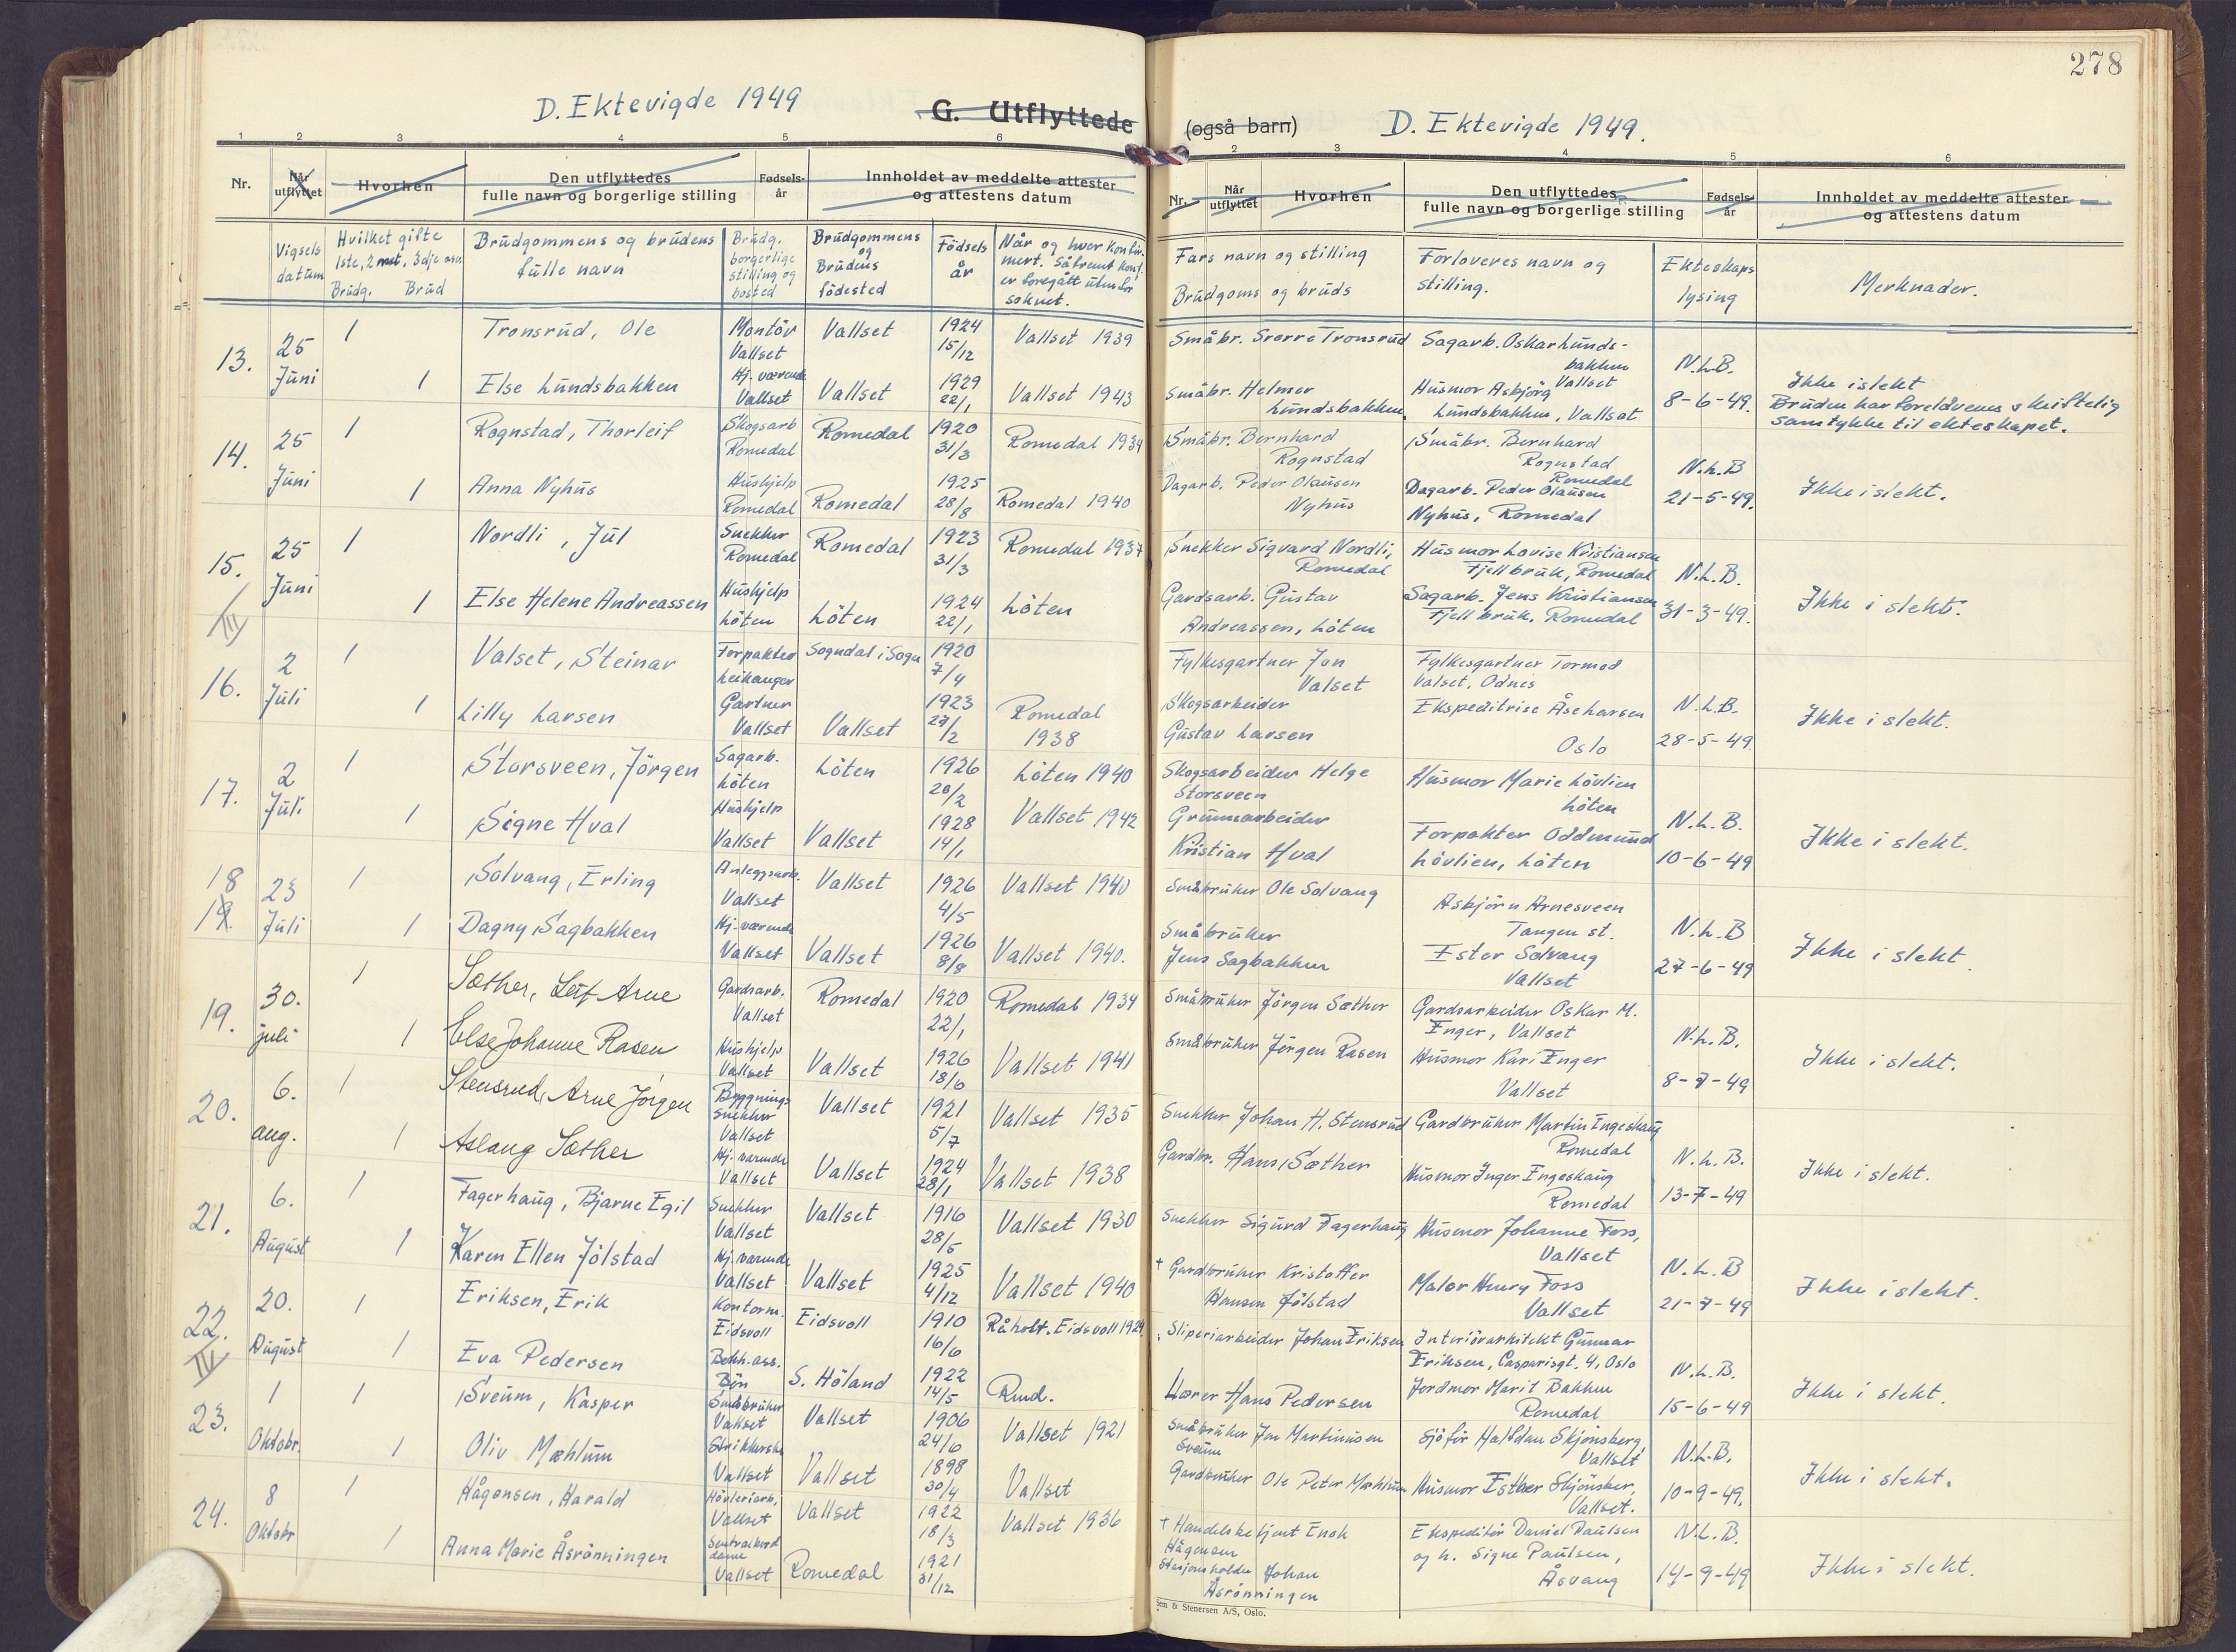 278
D. Ektevigde 1949
G. Utflyttede (også barn)
D. Ektevigde 1949.
1 2 3 4 5 6
2 3 4 5 6
Nr. Når utflyttet Hvorhen Den utflyttedes fulle navn og borgerlige stilling Fødselsår Innholdet av meddelte attester og attestens datum
Nr. Når utflyttet Hvorhen Den utflyttedes fulle navn og borgerlige stilling Fødselsår Innholdet av meddelte attester og attestens datum
Vigsels datum
Hvilket gifte 1ste, 2net, 3dje osv.
Brudg. Brud
Brudgommens og brudens fulle navn
Brudg. borgerlige stilling og bosted
Brudgommens og Brudens födested
Födsels år
Når og hvor konfirmert. Såfremt konf. er foregått utenfor soknet.
Fars navn og stilling
Brudgoms og bruds
Forloveres navn og stilling.
Ekteskaps lysing
Merknader.
13. 25 Juni
1 Tronsrud, Ole Montör Vallset Vallset 1924 15/12 Vallset 1939 Småbr. Sverre Tronsrud Sagarb. Oskar Lundsbakken Vallset
1 Else Lundsbakken Hj. værende Vallset Vallset 1929 22/1 Vallset 1943 Småbr. Helmer Lundsbakken. Husmor Asbjörg Lundsbakken, Vallset
N.L.B. 8-6-49. Ikke i slekt Bruden har foreldrenes skriftelig samtykke til ekteskapet.
14. 25 Juni
1 Rognstad, Thorleif Skogsarb Romedal Romedal 1920 31/3 Romedal 1934 Småbr. Bernhard Rognstad Småbr. Bernhard Rognstad Romedal
1 Anna Nyhus Hushjelp Romedal Romedal 1925 28/8 Romedal 1940 Dagarb. Peder Olausen Nyhus Dagarb. Peder Olausen Nyhus, Romedal
N.L.B 21-5-49. Ikke i slekt.
15. 25 Juni
III
1 Nordli, Jul Snekker Romedal Romedal 1923 31/3 Romedal 1937 Snekker Sigvard Nordli, Romedal Husmor Lovise Kristiansen Fjellbruk, Romedal
1 Else Helene Andreassen Hushjelp Löten Löten 1924 22/1 Löten Gardsarb. Gustav Andreassen, Löten Sagarb. Jens Kristiansen Fjellbruk, Romedal
N.L.B. 31-3-49. Ikke i slekt.
16. 2 Juli
1 Valset, Steinar Forpakter Leikanger Sogndal i Sogn 1920 7/4 Fylkesgartner Jon Valset Fylkesgartner Tormod Valset, Odnes
1 Lilly Larsen Gartner Vallset Vallset 1923 27/2 Romedal 1938 Skogsarbeider Gustav Larsen Ekspeditrise Åse Larsen Oslo
N.L.B. 28-5-49. Ikke i slekt.
17. 2 Juli
1 Storsveen, Jörgen Sagarb. Löten Löten 1926 20/2 Löten 1940 Skogsarbeider Helge Storsveen Husmor Marie Lövlien Löten
1 Signe Hval Hushjelp Vallset Vallset 1928 14/1 Vallset 1942 Kristian Hval Forpakter Oddmund Lövlien, Löten
N.L.B. 10-6-49 Ikke i slekt.
18 19. 23 Juli
1 Solvang, Erling Anleggsarb. Vallset Vallset 1926 4/5 Vallset 1940 Småbruker Ole Solvang Asbjörn Arnesveen Tangen st.
1 Dagny Sagbakken Hj. værende Vallset Vallset 1926 8/8 Vallset 1940. Småbruker Jens Sagbakken Ester Solvang Vallset
N.L.B 27-6-49 Ikke i slekt.
19. 30. juli
1 Sæther, Leif Arne Gardsarb. Vallset Romedal 1920 22/1 Romedal 1934 Småbruker Jörgen Sæther Gardsarbeider Oskar M. Enger, Vallset
1 Else Johanne Rasen Hushjelp Vallset Vallset 1926 18/6 Vallset 1941 Småbruker Jörgen Rasen Husmor Kari Enger Vallset
N.L.B. 8-7-49 Ikke i slekt.
20. 6. aug.
1 Stensrud, Arne Jörgen Bygningssnekker Vallset Vallset 1921 5/7 Vallset 1935 Snekker Johan H. Stensrud Gardbruker Martin Engeshaug Romedal
1 Aslaug Sæther Hj. værende Vallset Vallset 1924 28/1 Vallset 1938 Gardbr. Hans Sæther Husmor Inger Engeshaug Romedal
N.L.B. 13-7-49 Ikke i slekt.
21. 6. August
1 Fagerhaug, Bjarne Egil Snekker Vallset Vallset 1916 28/5 Vallset 1930 Snekker Sigurd Fagerhaug Husmor Johanne Foss, Vallset
1 Karen Ellen Jölstad Hj. værende Vallset Vallset 1925 4/12 Vallset 1940 + Gardbruker Kristoffer Hansen Jölstad Maler Henry Foss Vallset
N.L.B 21-7-49 Ikke i slekt.
22. 20. August
IV
1 Eriksen, Erik Kontorm. Eidsvoll Eidsvoll 1910 16/6 Råholt. Eidsvoll 1924 Sliperiarbeider Johan Eriksen Interiörarkitekt Gunnar Eriksen, Casparisgt. 4, Oslo
1 Eva Pedersen Bekh. ass. Bön S. Höland 1922 14/5 Rud. Lærer Hans Pedersen Jordmor Marit Bakken Romedal
N.L.B. 15-6-49 Ikke i slekt.
23. 1 Oktobr.
1 Sveum, Kasper Småbruker Vallset Vallset 1906 24/6 Vallset 1921 Småbruker Jon Martinusen Sveum Sjåför Halfdan Skjönsberg Vallset
1 Oliv Mæhlum Strikkerske Vallset Vallset 1898 30/4 Vallset Gardbruker Ole Peter Mæhlum Husmor Esther Skjönsber, Vallset.
N.L.B. 10-9-49. Ikke i slekt.
24. 8 Oktobr
1 Hågensen, Harald Hövleriarb. Vallset Vallset 1922 18/3 Vallset 1936 + Handelsbetjent Enok Hågensen Ekspeditör Daniel Paulsen
1 Anna Marie Åsrönningen Sentralborddame Vallset Romedal 1921 31/12 Stasjonsholder Johan Åsrönningen og h. Signe Paulsen, Åsvang
N.L.B. 14-9-49 Ikke i slekt.
Sem & Stenersen A/S, Oslo.